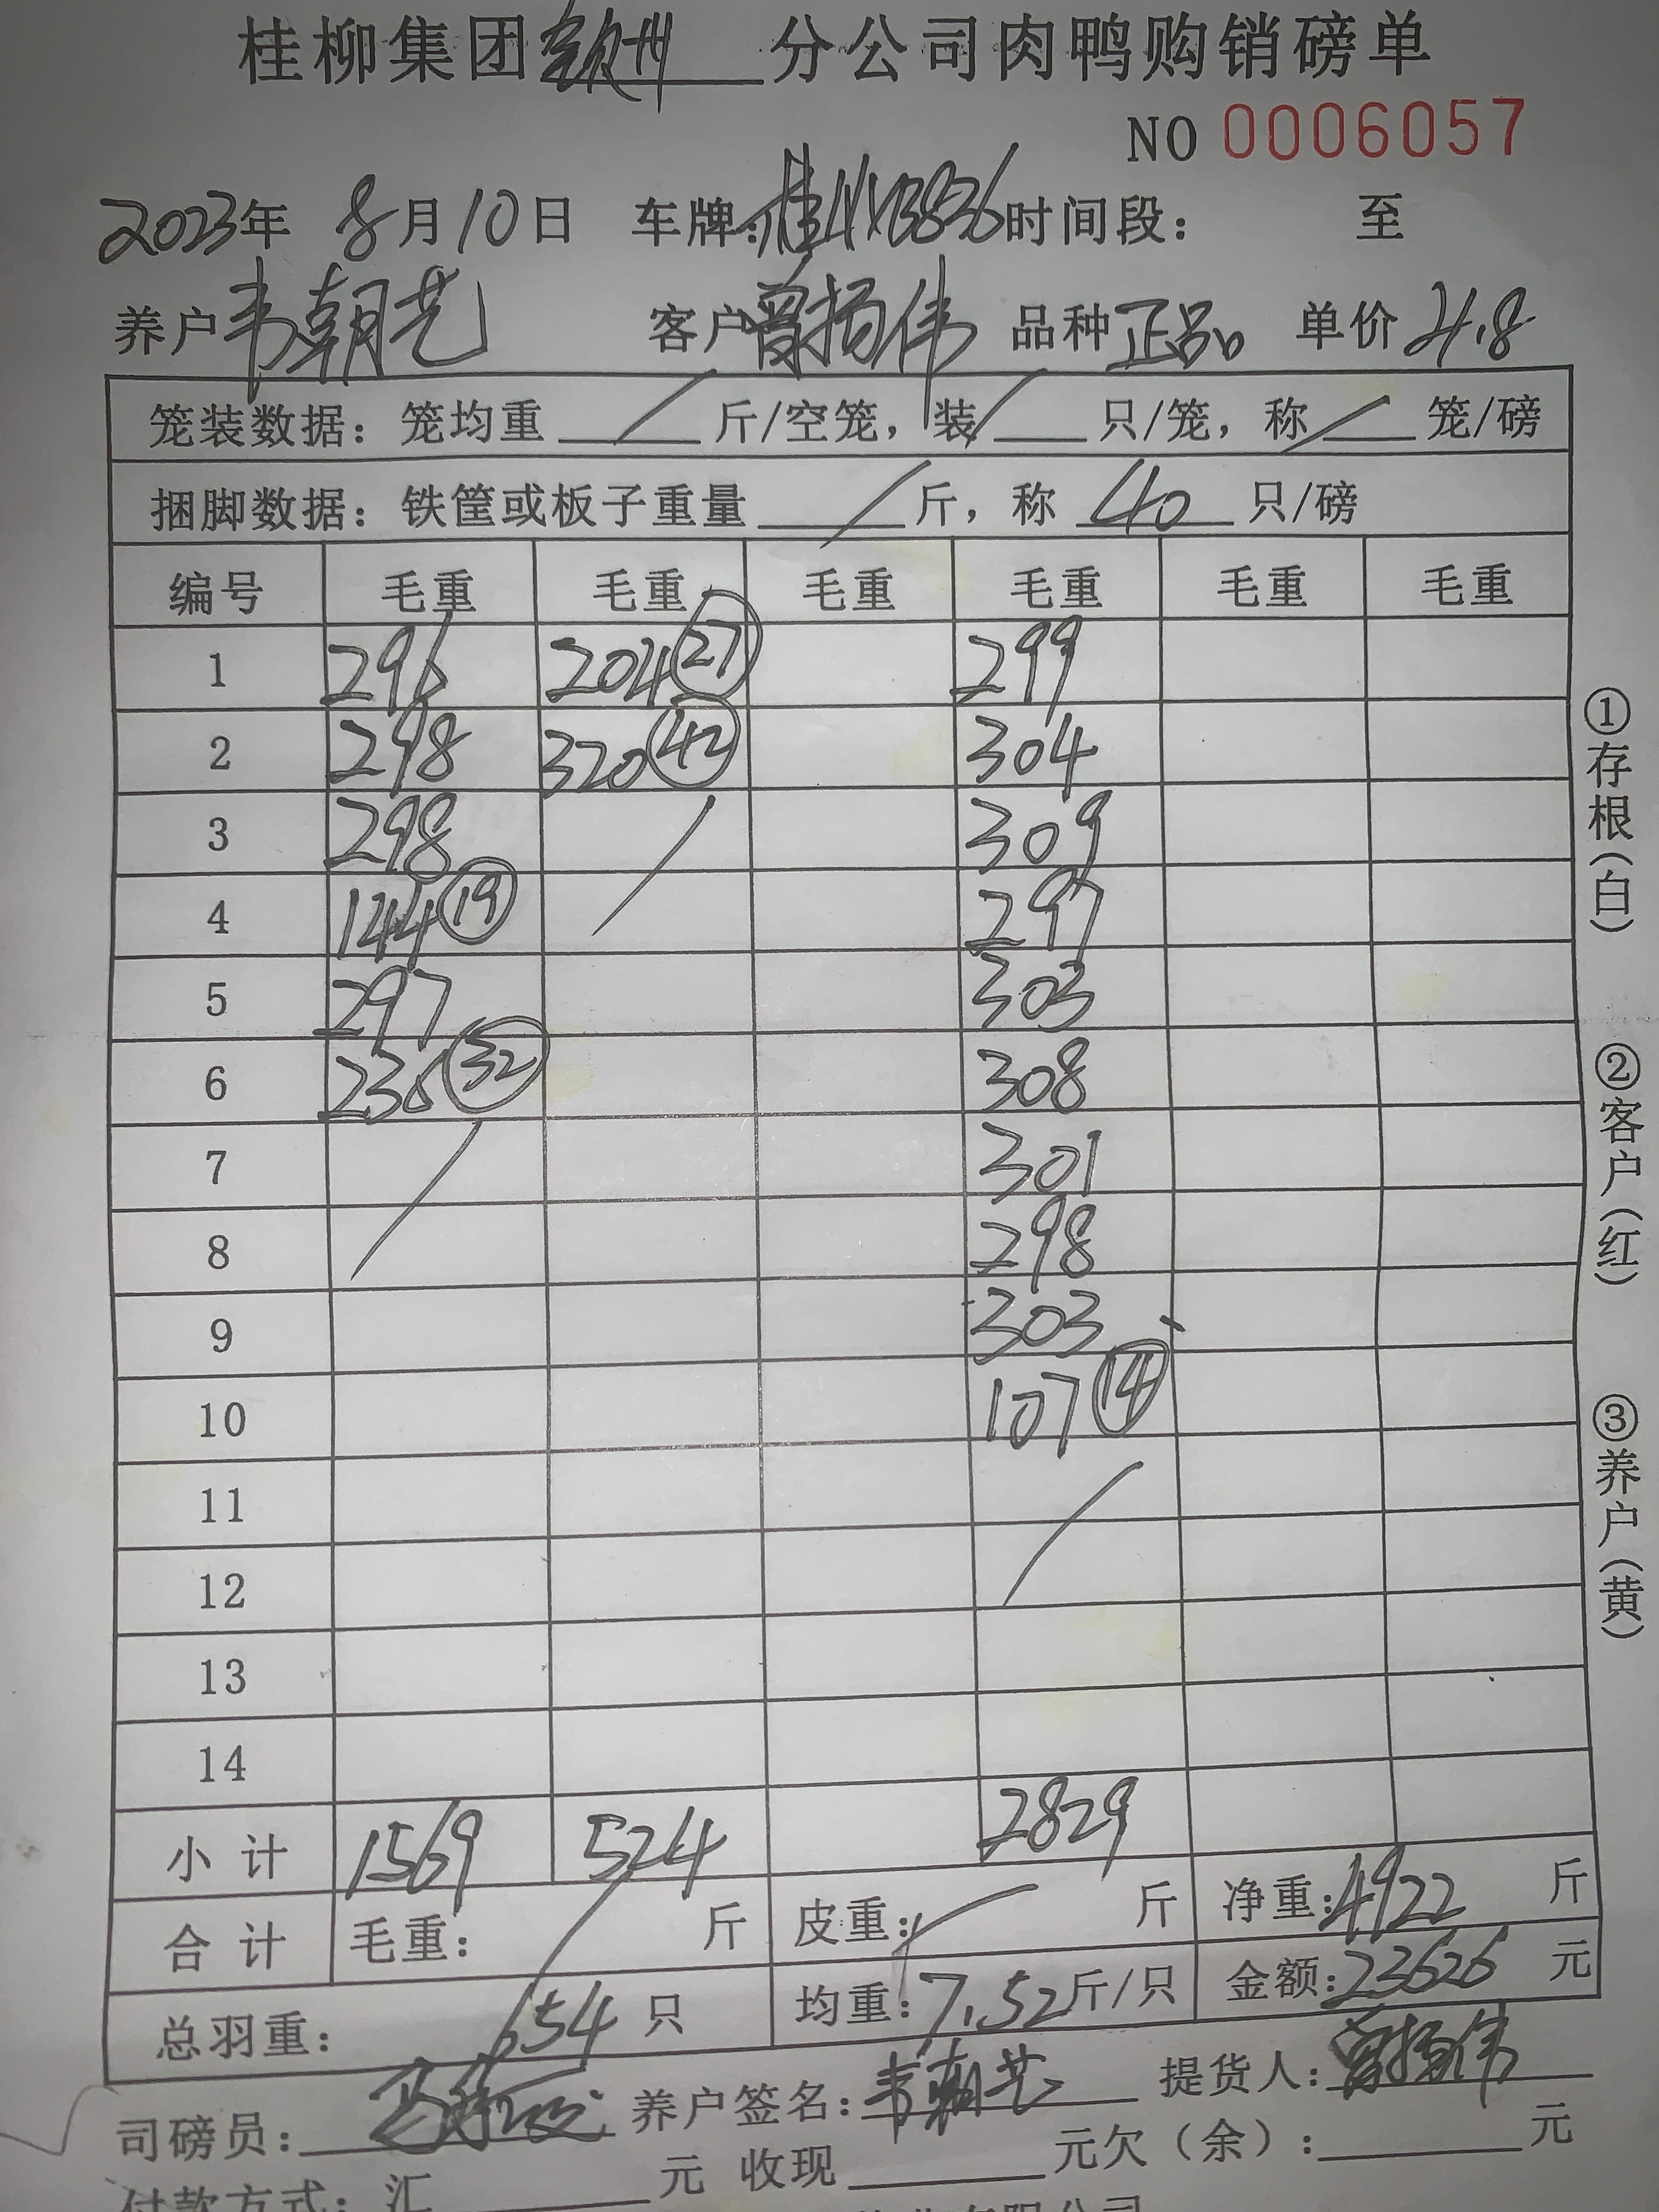 桂柳集团钦州分公司肉鸭购销磅单
NO 0006057
2023年 8月10日 车牌: 时间段: 至
养户韦朝艺 客户曾扬伟 品种正品 单价4.8
笼装数据: 笼均重 / 斤/空笼, 装 / 只/笼, 称 / 笼/磅
捆脚数据: 铁筐或板子重量 / 斤, 称 40 只/磅
编号 毛重 毛重 毛重 毛重 毛重 毛重
1 296 204 27 299
2 298 320 42 304
3 298 / 309
4 144 19 297
5 297 303
6 236 32 308
7 / 301
8 298
9 303
10 107 14
11 /
12
13
14
小计 1569 524 2829
合计 毛重: / 斤 皮重: / 斤 净重: 4922 斤
总羽重: 654 只 均重: 7.52斤/只 金额: 23626 元
司磅员: 养户签名: 韦朝艺 提货人: 曾扬伟
付款方式: 汇 元 收现 元欠(余): 元
①存根(白)
②客户(红)
③养户(黄)